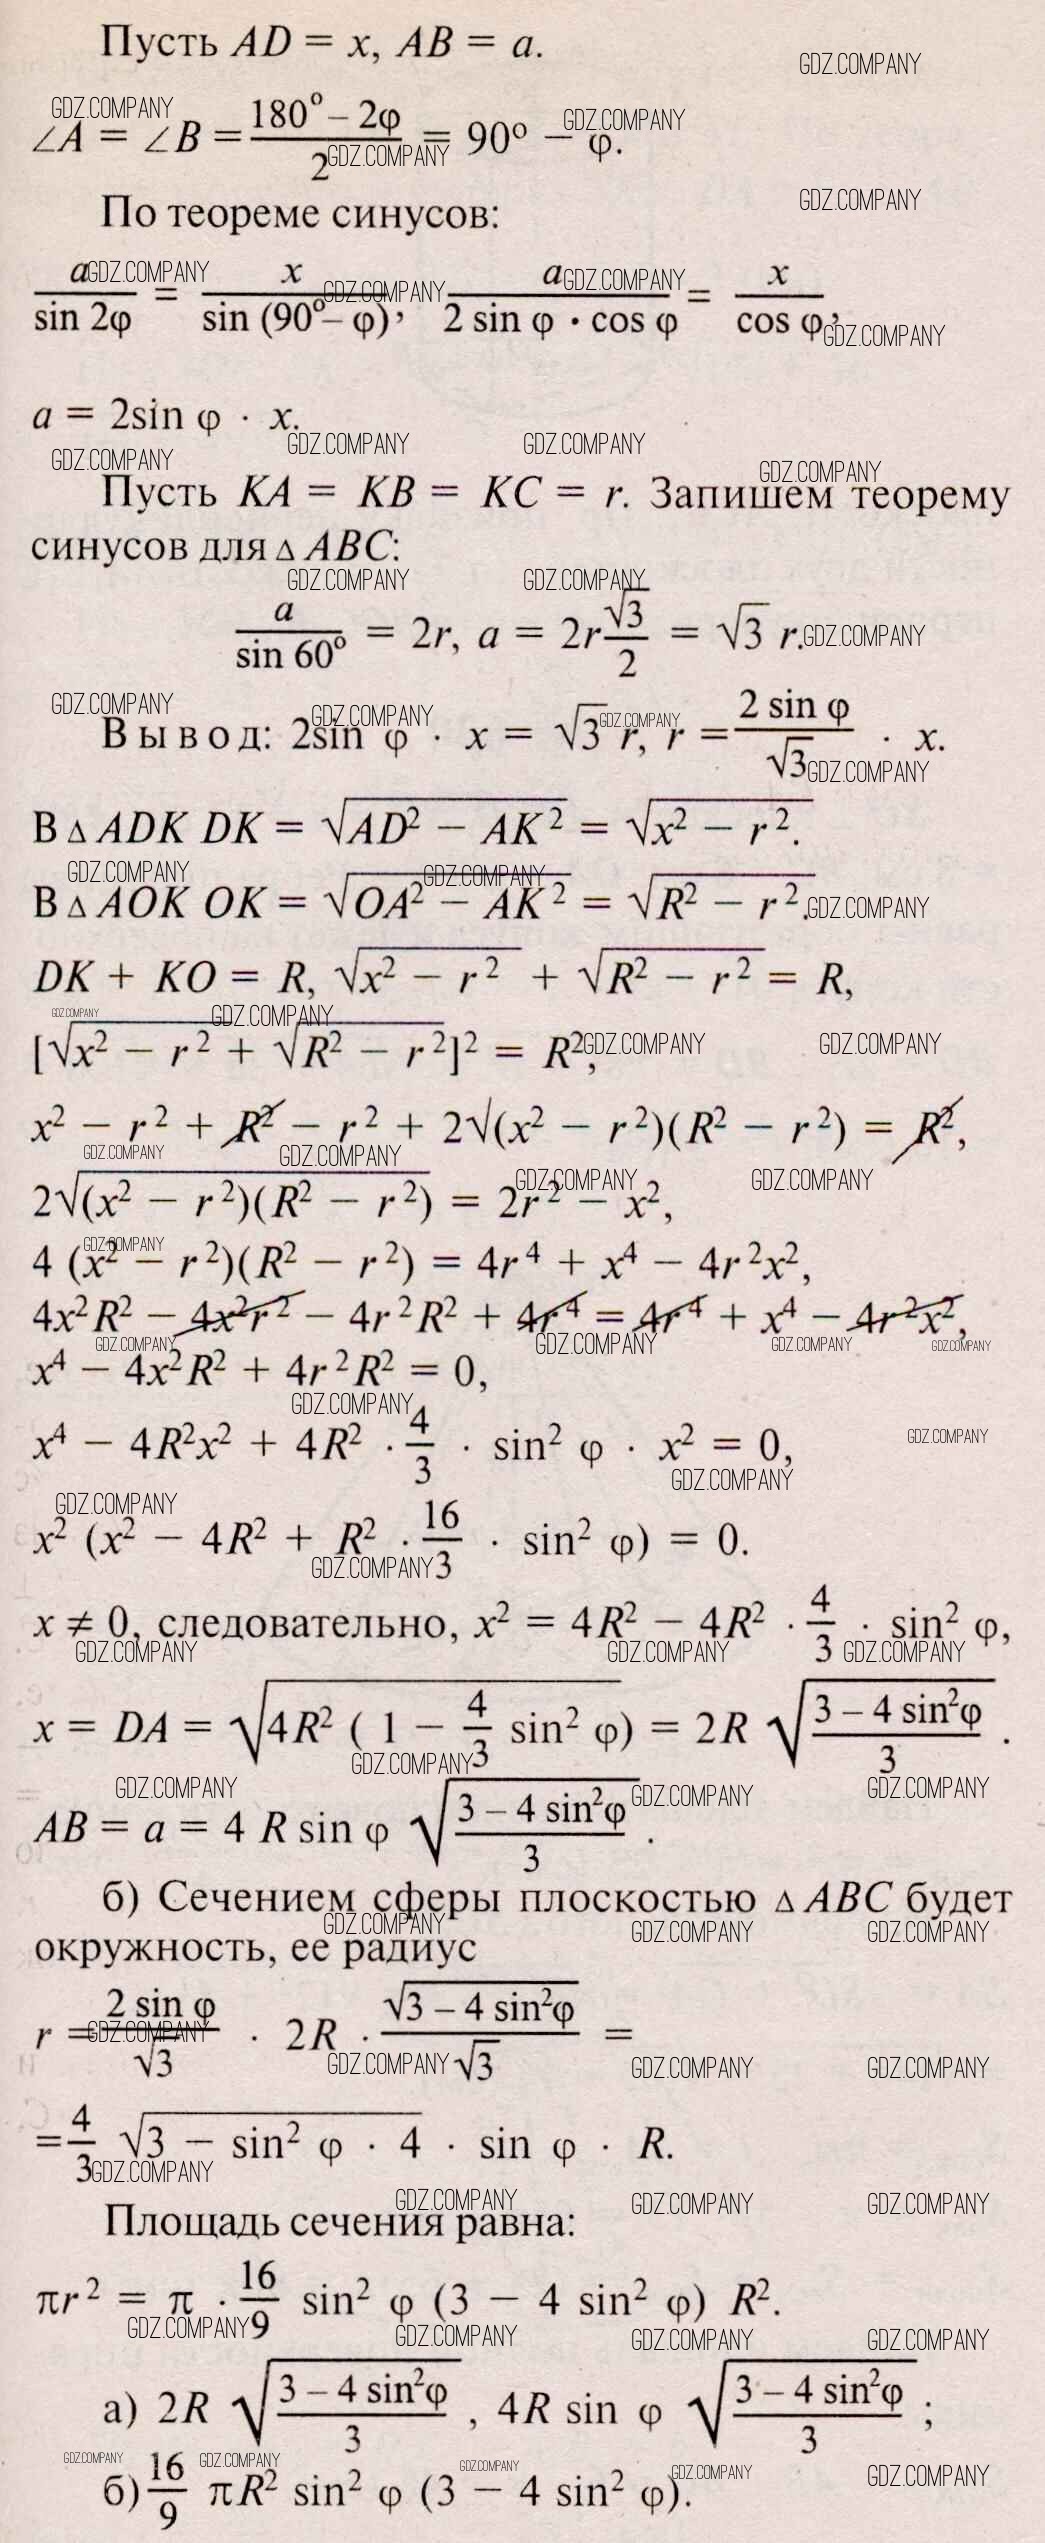 Пусть AD = x, AB = a.
∠A = ∠B = (180° – 2φ)/2 = 90° – φ.
По теореме синусов:
a/(sin 2φ) = x/(sin (90° – φ)), a/(2 sin φ · cos φ) = x/(cos φ),
a = 2sin φ · x.
Пусть KA = KB = KC = r. Запишем теорему
синусов для △ ABC:
a/(sin 60°) = 2r, a = 2r √3/2 = √3 r.
Вывод: 2sin φ · x = √3 r, r = (2 sin φ)/√3 · x.
В △ ADK DK = √(AD² – AK²) = √(x² – r²).
В △ AOK OK = √(OA² – AK²) = √(R² – r²).
DK + KO = R, √(x² – r²) + √(R² – r²) = R,
[√(x² – r²) + √(R² – r²)]² = R²,
x² – r² + R² – r² + 2√(x² – r²)(R² – r²) = R²,
2√((x² – r²)(R² – r²)) = 2r² – x²,
4 (x² – r²)(R² – r²) = 4r⁴ + x⁴ – 4r²x²,
4x²R² – 4x²r² – 4r²R² + 4r⁴ = 4r⁴ + x⁴ – 4r²x²,
x⁴ – 4x²R² + 4r²R² = 0,
x⁴ – 4R²x² + 4R² · 4/3 · sin² φ · x² = 0,
x² (x² – 4R² + R² · 16/3 · sin² φ) = 0.
x ≠ 0, следовательно, x² = 4R² – 4R² · 4/3 · sin² φ,
x = DA = √(4R² (1 – 4/3 sin² φ)) = 2R √((3 – 4 sin²φ)/3).
AB = a = 4 R sin φ √((3 – 4 sin²φ)/3).
б) Сечением сферы плоскостью △ ABC будет
окружность, ее радиус
r = (2 sin φ)/√3 · 2R · √(3 – 4 sin²φ)/√3 =
= 4/3 √(3 – sin² φ · 4) · sin φ · R.
Площадь сечения равна:
πr² = π · 16/9 sin² φ (3 – 4 sin² φ) R².
а) 2R √((3 – 4 sin²φ)/3), 4R sin φ √((3 – 4 sin²φ)/3);
б) 16/9 πR² sin² φ (3 – 4 sin² φ).
GDZ.COMPANY